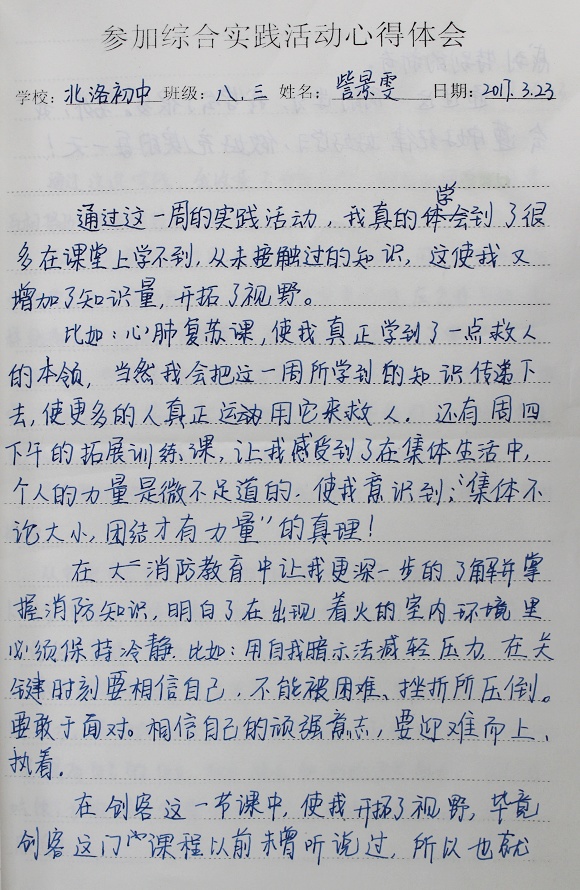 参加综合实践活动心得体会
学校：北洛初中 班级：八.三 姓名：訾景雯 日期：2017.3.23
通过这一周的实践活动，我真的体会学到了很
多在课堂上学不到，从未接触过的知识，这使我又
增加了知识量，开拓了视野。
比如：心肺复苏课，使我真正学到了一点救人
的本领，当然我会把这一周所学到的知识传递下
去，使更多的人真正运动用它来救人。还有周四
下午的拓展训练课，让我感受到了在集体生活中，
个人的力量是微不足道的。使我意识到：“集体不
论大小，团结才有力量”的真理！
在大消防教育中让我更深一步的了解并掌
握消防知识，明白了在出现着火的室内环境里
必须保持冷静。比如：用自我暗示法减轻压力，在关
键时刻要相信自己，不能被困难、挫折所压倒。
要敢于面对。相信自己的顽强意志，要迎难而上、
执着。
在创客这一节课中，使我开拓了视野，毕竟
创客这门课程以前未曾听说过，所以也就